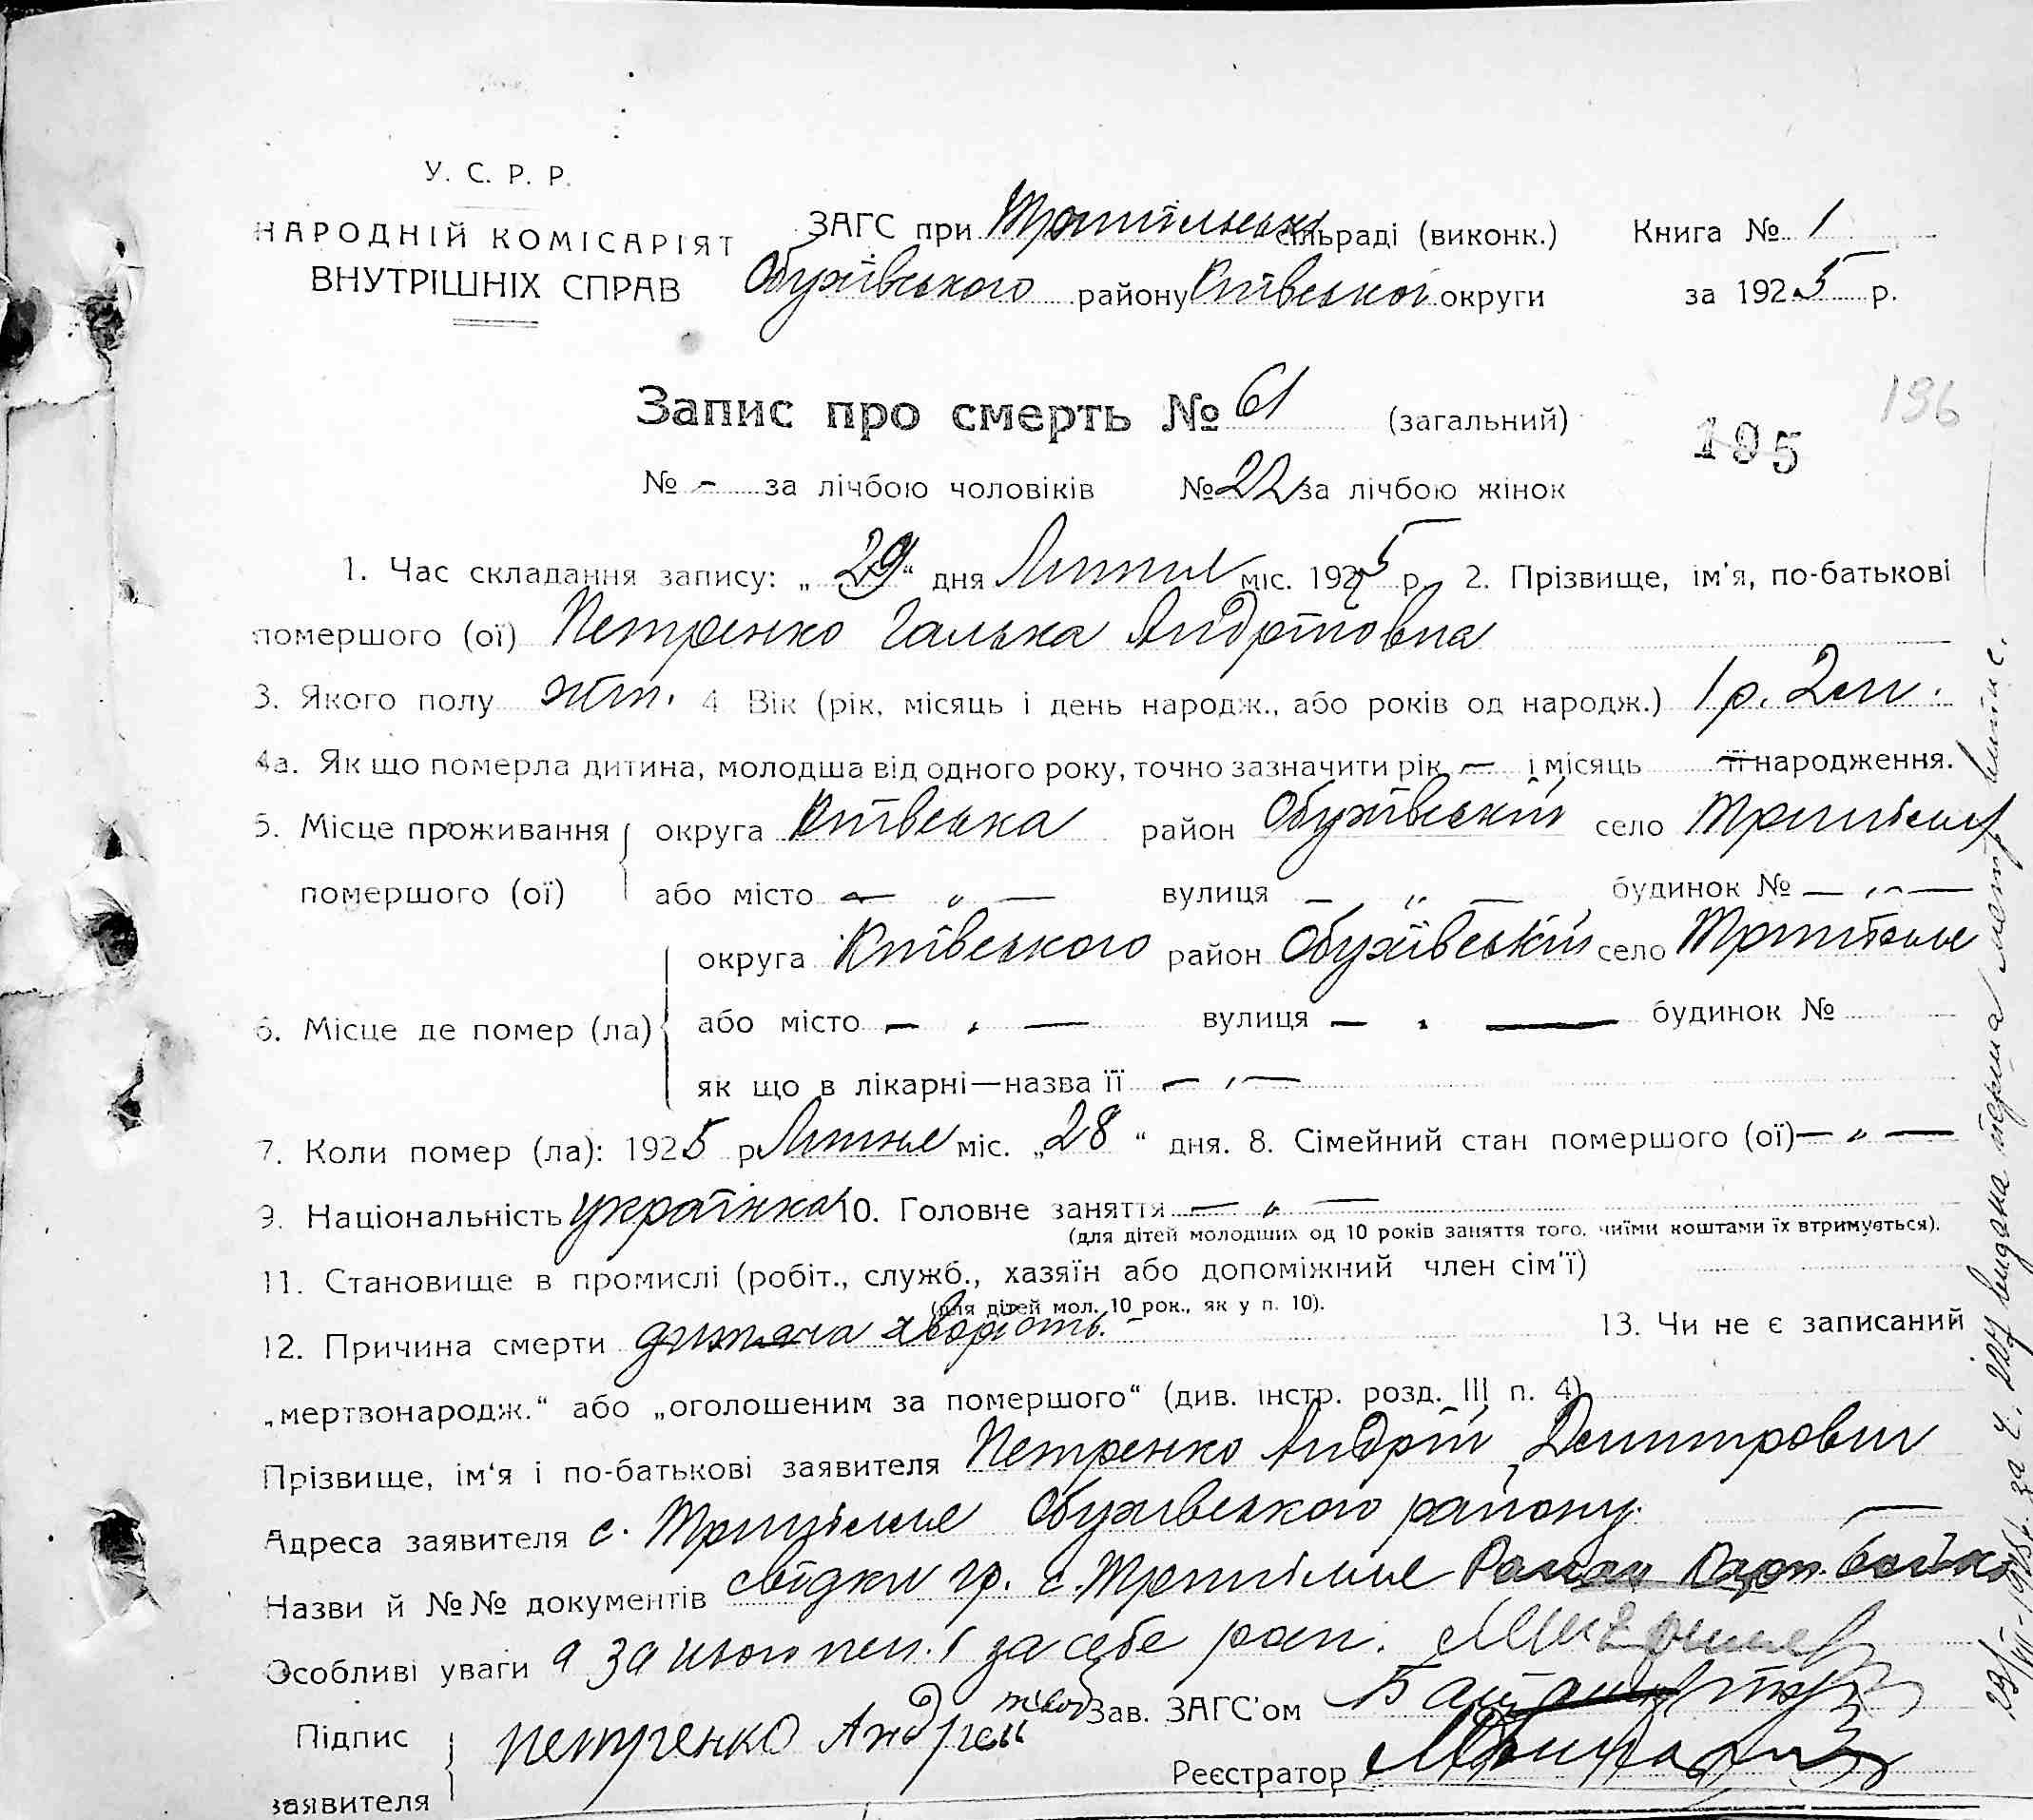 У. С. Р. Р.
НАРОДНІЙ КОМІСАРІЯТ
ВНУТРІШНІХ СПРАВ
ЗАГС при Трипільськ сільраді (виконк.)
Обухівського району Київської округи
Книга № 1
за 1925 р.
Запис про смерть № 61 (загальний)
195
196
№ - за лічбою чоловіків № 22 за лічбою жінок
1. Час складання запису: „29“ дня Липня міс. 1925 р. 2. Прізвище, ім'я, по-батькові
помершого (ої) Петренко Галька Андріївна
3. Якого полу жін. 4 Вік (рік, місяць і день народж., або років од народж.) 1 р. 2 м.
4а. Як що померла дитина, молодша від одного року, точно зазначити рік — і місяць її народження.
5. Місце проживання округа Київська район Обухівський село Трипілля
помершого (ої) або місто — „ — вулиця — „ — будинок № — „ —
округа Київського район Обухівський село Трипілля
6. Місце де помер (ла) або місто — „ — вулиця — „ — будинок №
як що в лікарні—назва її — „ —
7. Коли помер (ла): 1925 р Липня міс. „28“ дня. 8. Сімейний стан помершого (ої) — „ —
9. Національність українка 10. Головне заняття — „ —
(для дітей молодших од 10 років заняття того, чиїми коштами їх втримується).
11. Становище в промислі (робіт., служб., хазяїн або допоміжний член сім'ї)
(для дітей мол. 10 рок., як у п. 10).
12. Причина смерти дитяча хворість. 13. Чи не є записаний
„мертвонародж.“ або „оголошеним за помершого“ (див. інстр. розд. III п. 4)
Прізвище, ім'я і по-батькові заявителя Петренко Андрій Демитрович
Адреса заявителя с. Трипілля Обухівського району
Назви й №№ документів свідки гр. с. Трипілля Роман Карп. Бойко
Особливі уваги а за нього неп. і за себе росп.
Підпис заявителя петренко Андрей
Зав. ЗАГС'ом
Реєстратор